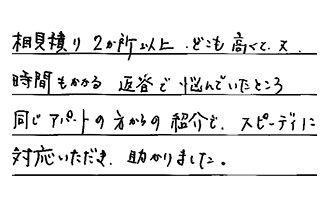 相見積り 2か所以上、どこも高くて、又、
時間もかかる 返答で 悩んでいたところ
同じアパートの方からの紹介で、スピーディに
対応いただき、助かりました。